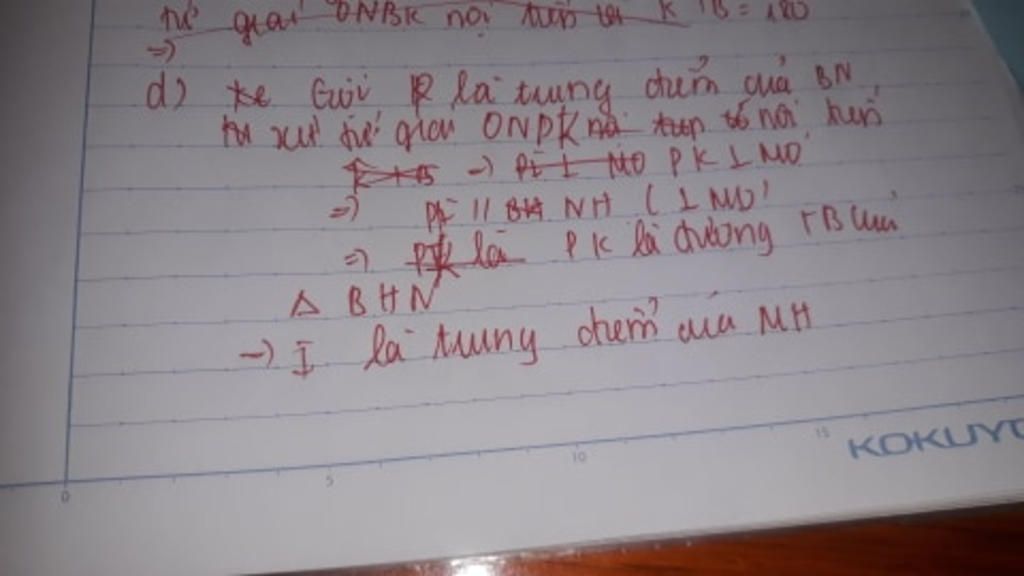 tứ giác ONBK nội tiếp K B = 180
=>
d) kẻ Gọi P là trung điểm của BN
tư xét tứ giác ONPK nội tiếp tố nội tiếp
K I B -> PI ⊥ MO PK ⊥ MO
=> PK // BH NH ( ⊥ MO )
=> PK là PK là đường TB của
Δ BHN
-> I là trung điểm của MH
0 5 10 15
KOKUYO